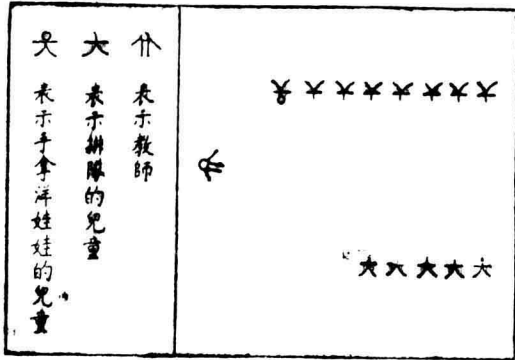 表示教師
表示排隊的兒童
表示手拿洋娃娃的兒童